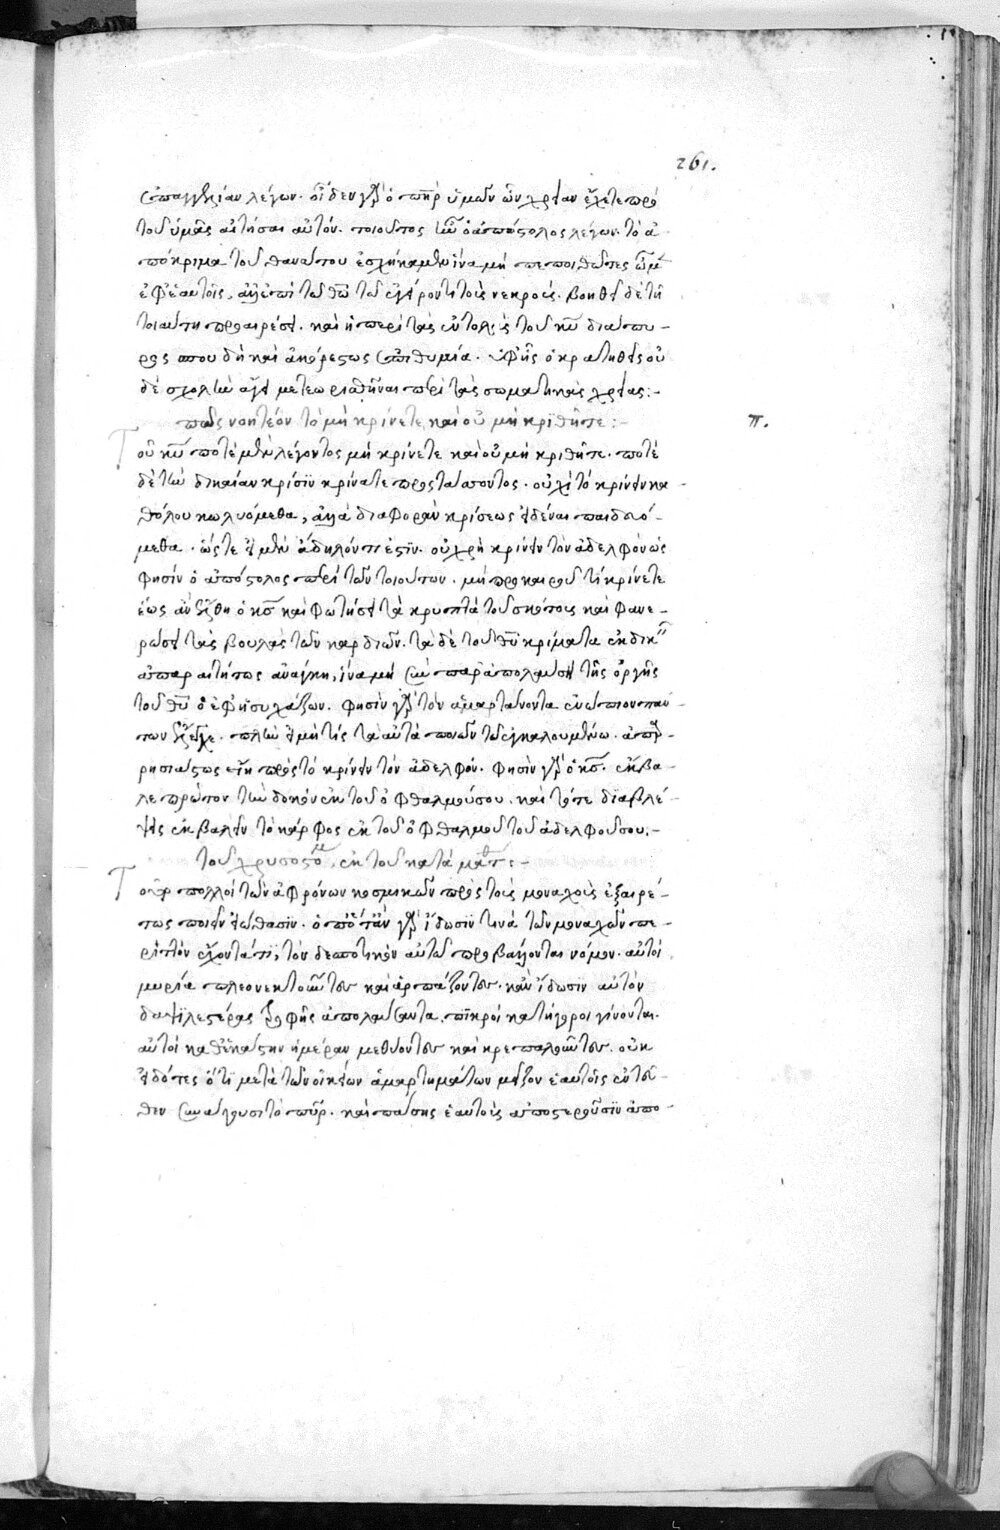 261.
ἐπαγγελίαν λέγων. οἶδεν γὰρ ὁ πηρ ὑμῶν ὧν χρείαν ἔχετε πρὸ
τοῦ ὑμᾶς αἰτῆσαι αὐτόν. τοιοῦτος ἦν ὁ ἀπόστολος λέγων. τὸ ἀ-
πόκριμα τοῦ θανάτου ἐσχήκαμεν ἵνα μὴ πεποιθότες ὦμεν
ἐφ' ἑαυτοῖς, ἀλλ' ἐπὶ τῷ θῷ τῷ ἐγείροντι τοὺς νεκρούς. βοηθεῖ δὲ τῇ
τοιαύτῃ προαιρέσει. καὶ ἡ περὶ τὰς ἐντολὰς τοῦ κυ διάπυ-
ρος σπουδὴ καὶ ἀκόρεστος ἐπιθυμία. ἀφ' ἧς ὁ κρατηθεὶς οὐ
δὲ σχολὴν ἄγει μετεωρισθῆναι περὶ τὰς σωματικὰς χρείας:-
πῶς νοητέον τὸ μὴ κρίνετε καὶ οὐ μὴ κριθῆτε:- π.
Τοῦ κυ ποτὲ μὲν λέγοντος μὴ κρίνετε καὶ οὐ μὴ κριθῆτε. ποτὲ
δὲ τὴν δικαίαν κρίσιν κρίνατε προστάττοντος. οὐχὶ τὸ κρίνειν κα-
θόλου κωλυόμεθα, ἀλλὰ διαφορὰν κρίσεως εἰδέναι παιδευό-
μεθα. ὥστε εἰ μὲν ἄδηλόν τι ἐστὶν. οὐ χρὴ κρίνειν τὸν ἀδελφὸν ὥς
φησιν ὁ ἀπόστολος περὶ τῶν τοιούτων. μὴ πρὸ καιροῦ τὶ κρίνετε
ἕως ἂν ἔλθη ὁ κς καὶ φωτίσει τὰ κρυπτὰ τοῦ σκότους καὶ φανε-
ρώσει τὰς βουλὰς τῶν καρδιῶν. τὰ δὲ τοῦ θυ κρίματα ἐκδικεῖν
ἀπαραιτήτως ἀνάγκη, ἵνα μὴ συναπολαύσῃ τῆς ὀργῆς
τοῦ θυ ὁ ἐφησυχάζων. φησὶν γὰρ τὸν ἁμαρτάνοντα ἐνώπιον πάν-
των ἔλεγχε. πλὴν εἰ μή τίς τὰ αὐτὰ ποιῶν τῷ ἐγκαλουμένῳ. ἀπαρ-
ρησίαστος εἴη πρὸς τὸ κρίνειν τὸν ἀδελφόν. φησὶν γὰρ ὁ κς. ἔκβα-
λε πρῶτον τὴν δοκὸν ἐκ τοῦ ὀφθαλμοῦ σου. καὶ τότε διαβλέ-
ψεις ἐκβαλεῖν τὸ κάρφος ἐκ τοῦ ὀφθαλμοῦ τοῦ ἀδελφοῦ σου:-
τοῦ χρυσοστόμ, ἐκ τοῦ κατὰ ματθ:-
Τοῦπερ πολλοὶ τῶν ἀφρόνων κοσμικῶν πρὸς τοὺς μοναχοὺς ἐξαιρέ-
τως ποιεῖν εἰώθασιν. ὁπόταν γὰρ ἴδωσιν τινὰ τῶν μοναχῶν πε-
ριττὸν ἔχοντά τι, τὸν δεσποτικὸν αὐτῷ προβάλλονται νόμον. αὐτοὶ
μυρία πλεονεκτοῦντες καὶ ἁρπάζοντες. κἂν ἴδωσιν αὐτὸν
δαψιλεστέρας τροφῆς ἀπολαύσαντα, πικροὶ κατήγοροι γίνονται.
αὐτοὶ καθ' ἑκάστην ἡμέραν μεθύοντες καὶ κρεπαλοῦντες. οὐκ
εἰδότες ὅτι μετὰ τῶν οἰκείων ἁμαρτημάτων μεῖζον ἑαυτοῖς ἐντεῦ-
θεν συνάγουσι τὸ πῦρ. καὶ πάσης ἑαυτοὺς ἀποστεροῦσιν ἀπο-